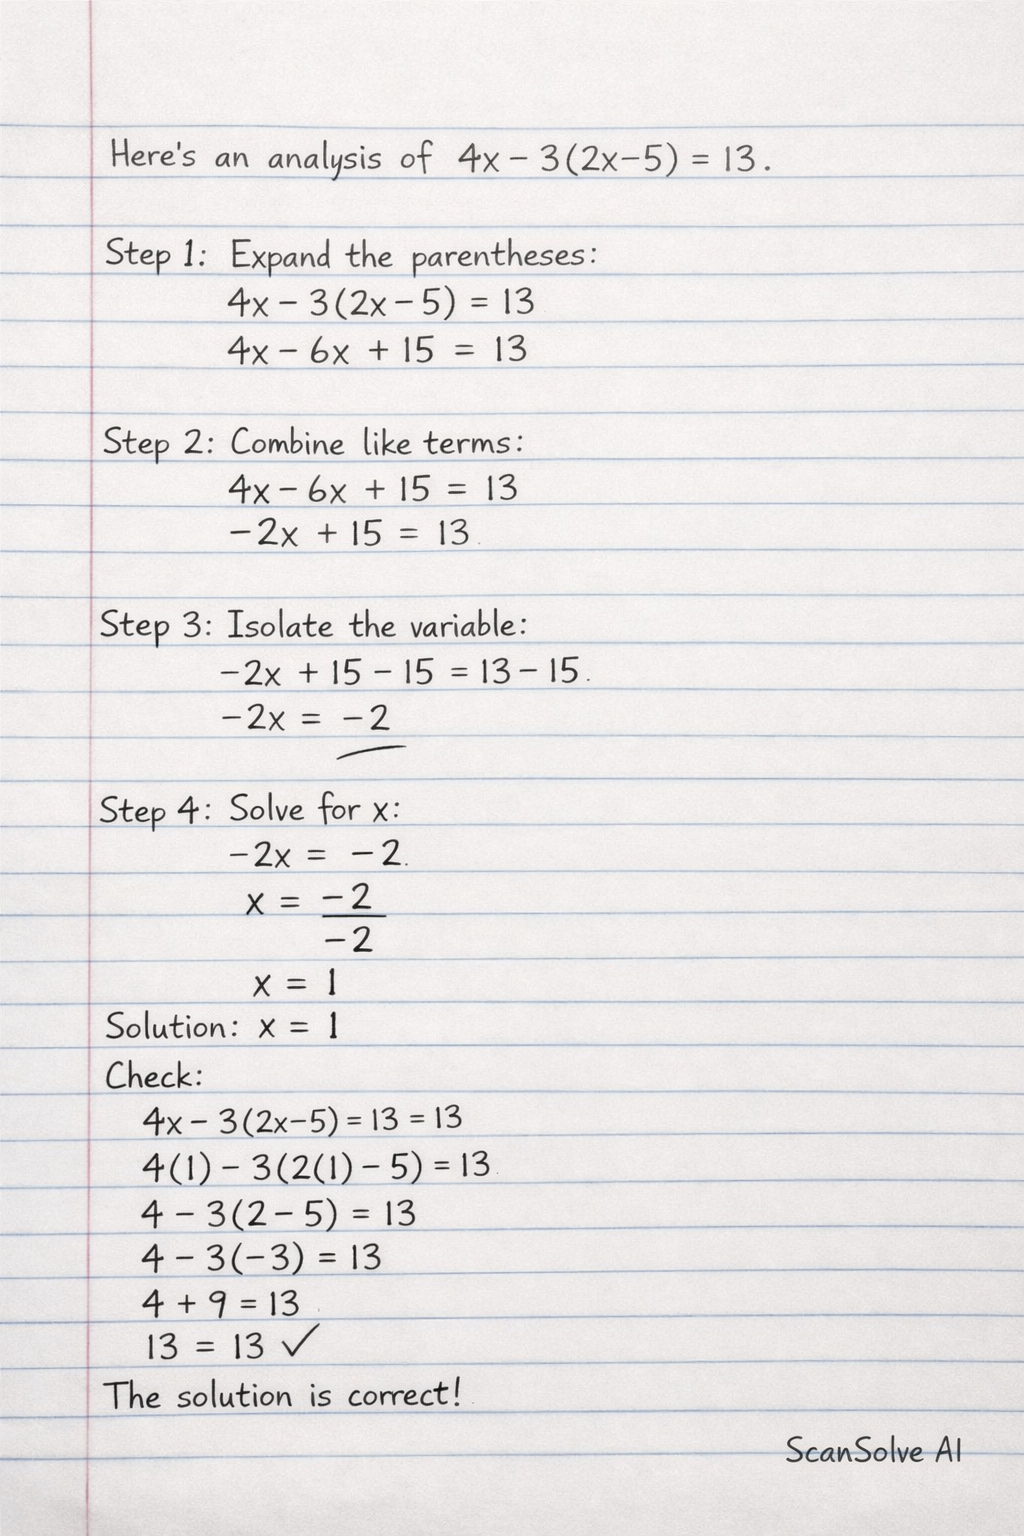 Here's an analysis of 4x − 3(2x−5) = 13.
Step 1: Expand the parentheses:
4x − 3(2x − 5) = 13
4x − 6x + 15 = 13
Step 2: Combine like terms:
4x − 6x + 15 = 13
−2x + 15 = 13
Step 3: Isolate the variable:
−2x + 15 − 15 = 13 − 15.
−2x = −2
Step 4: Solve for x:
−2x = −2.
x = −2
−2
x = 1
Solution: x = 1
Check:
4x − 3(2x−5) = 13 = 13
4(1) − 3(2(1) − 5) = 13
4 − 3(2 − 5) = 13
4 − 3(−3) = 13
4 + 9 = 13
13 = 13 ✓
The solution is correct!
ScanSolve AI